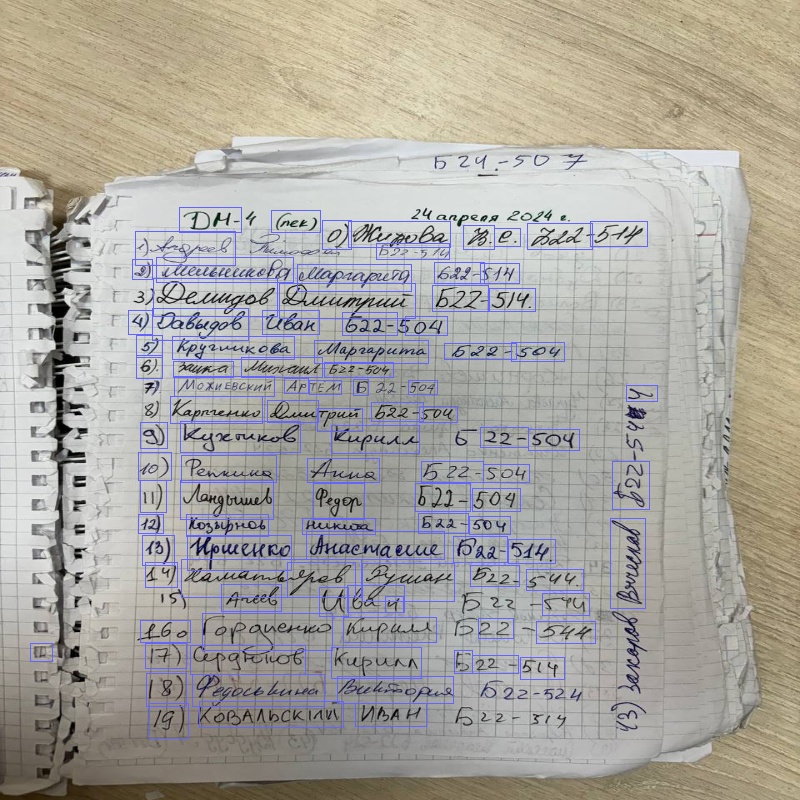 Б24-507
ДМ-4 (лек) 24 апреля 2024 г.
0) Жирова В.С. Б22-514
1) Андреев Тимофей Б22-514
2) Мельникова Маргарита Б22-514
3) Демидов Дмитрий Б22-514.
4) Давыдов Иван Б22-504
5) Кругликова Маргарита Б22-504
6) Заика Михаил Б22-504
7) Можиевский Артем Б22-504
8) Карпенко Дмитрий Б22-504
9) Кухтиков Кирилл Б 22-504
10) Репкина Анна Б22-504
11) Ландышев Федор Б22-504
12) Козырнов Никита Б22-504
13) Иршенко Анастасия Б22-514.
14) Хаматьяров Рушан Б22-544.
15) Агеев Иван Б22-544
16. Гордиенко Кирилл Б22-544
17) Сердюков Кирилл Б22-514
18) Федоськина Виктория Б22-524
19) КОВАЛЬСКИЙ ИВАН Б22-514
Захаров Вячеслав